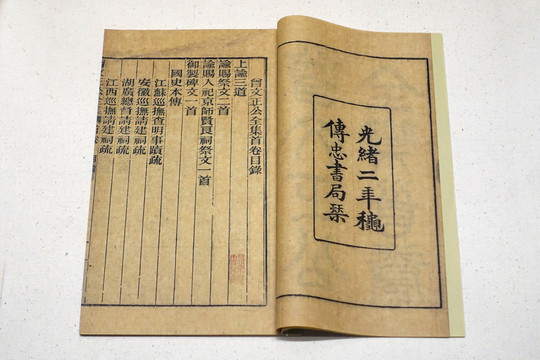 光緒二年龝
傳忠書局栞
曾文正公全集首卷目錄
上諭三道
諭賜祭文二首
諭賜入祀京師賢良祠祭文一首
御製碑文一首
國史本傳
江蘇巡撫查明事蹟疏
安徽巡撫請建祠疏
湖廣總督請建祠疏
江西巡撫請建祠疏